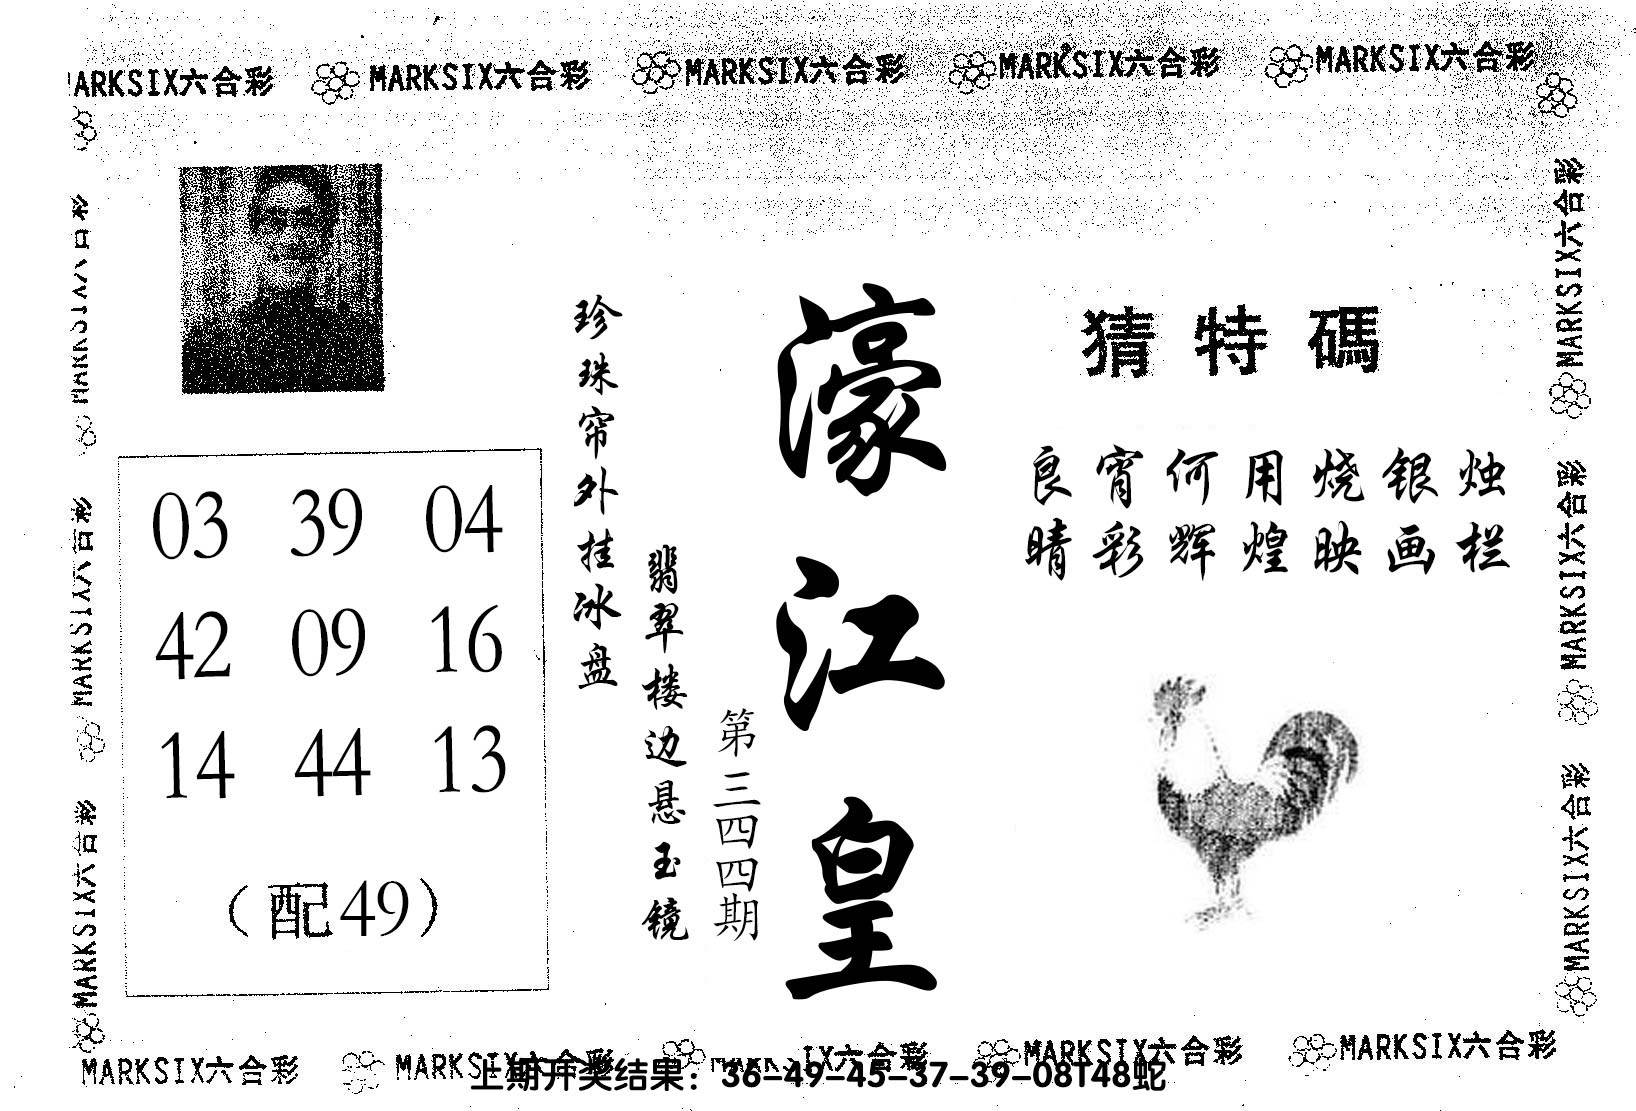 MARKSIX六合彩 MARKSIX六合彩 MARKSIX六合彩 MARKSIX六合彩 MARKSIX六合彩
猜特碼
良宵何用烧银烛
晴彩辉煌映画栏
濠江皇
第三四四期
翡翠楼边悬玉镜
珍珠帘外挂冰盘
03 39 04
42 09 16
14 44 13
（配49）
MARKSIX六合彩
MARKSIX六合彩
MARKSIX六合彩
MARKSIX六合彩
MARKSIX六合彩
MARKSIX六合彩
MARKSIX六合彩 MARKSIX六合彩 MARKSIX六合彩 MARKSIX六合彩 MARKSIX六合彩
上期开奖结果：36-49-45-37-39-08T48蛇